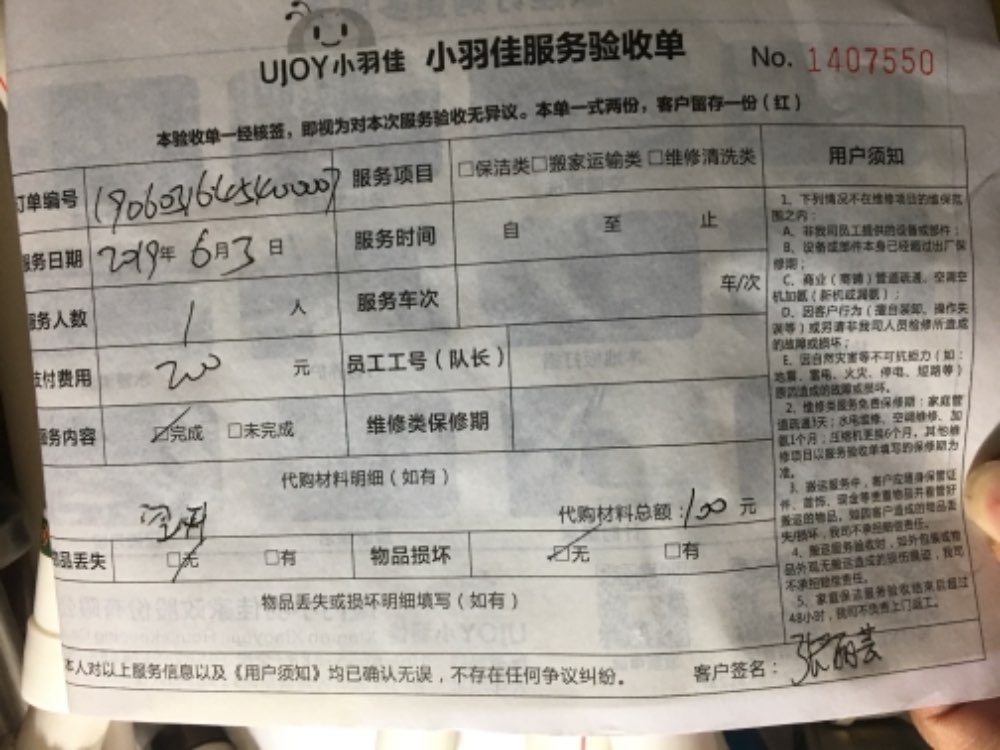 UJOY小羽佳 小羽佳服务验收单 No. 1407550
本验收单一经核签，即视为对本次服务验收无异议。本单一式两份，客户留存一份（红）
订单编号 服务项目 □保洁类□搬家运输类 □维修清洗类 用户须知
服务日期 2019年 6月3日 服务时间 自 至 止
服务人数 1 人 服务车次 车/次
支付费用 200 元 员工工号（队长）
服务内容 ☑完成 □未完成 维修类保修期
代购材料明细（如有）
代购材料总额：100 元
物品丢失 ☑无 □有 物品损坏 ☑无 □有
物品丢失或损坏明细填写（如有）
本人对以上服务信息以及《用户须知》均已确认无误，不存在任何争议纠纷。 客户签名：张丽芸
1、下列情况不在维修项目的维保范
围之内：
A、非我司员工提供的设备或部件；
B、设备或部件本身已经超过出厂保
修期；
C、商业（商铺）管道疏通、空调空
机加氨（新机或漏氨）；
D、因客户行为（擅自装卸、操作失
误等）或另请非我司人员检修所造成
的故障或损坏；
E、因自然灾害等不可抗能力（如：
地震、雷电、火灾、停电、短路等）
原因造成的故障或损坏。
2、维修类服务免费保修期：家庭管
道疏通3天；水电维修、空调维修、加
氨1个月；压缩机更换6个月，其他维
修项目以服务验收单填写的保修期为
准。
3、搬运服务中，客户应随身保管证
件、首饰、现金等贵重物品并看管好
搬运的物品，如因客户造成的物品丢
失/损坏，我司不承担赔偿责任。
4、搬运服务验收时，如外包装或物
品外观无搬运造成的损伤痕迹，我司
不承担赔偿责任。
5、家庭保洁服务验收结束后超过
48小时，我司不负责上门返工。